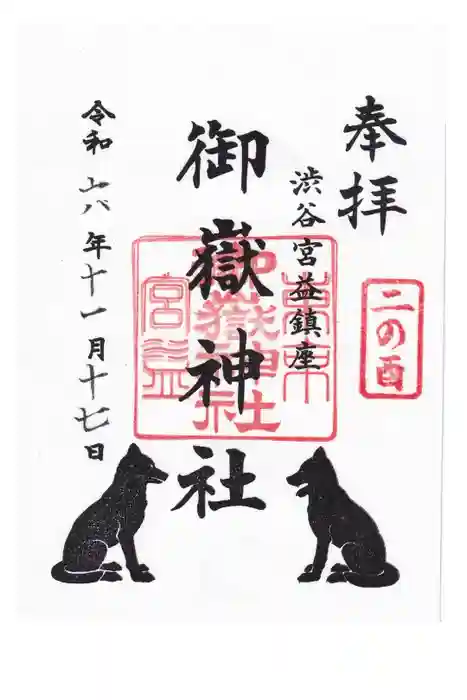 奉拝
二の酉
渋谷宮益鎮座
御嶽神社
東京
御嶽神社
宮益
令和六年十一月十七日